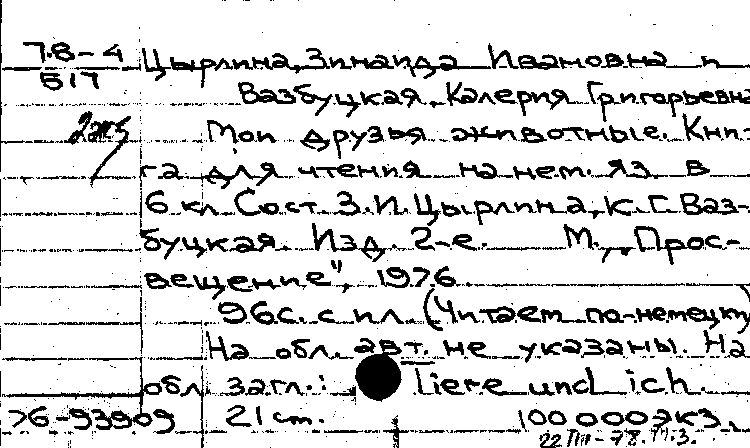 78-4 Цырлина, Зинаида Ивановна и
517
Вазбуцкая, Калерия Григорьевна
2экз Мои друзья животные. Кни-
га для чтения на нем. яз. в
6 кл. Сост. З.И. Цырлина, К.Г. Ваз-
буцкая. Изд. 2-е. М., „Прос-
вещение", 1976.
96с. с ил. (Читаем по-немецки)
На обл. авт. не указаны. На
обл. загл.: Tiere und ich.
76-93909 21 cm. 100 000экз.
22 III-78.